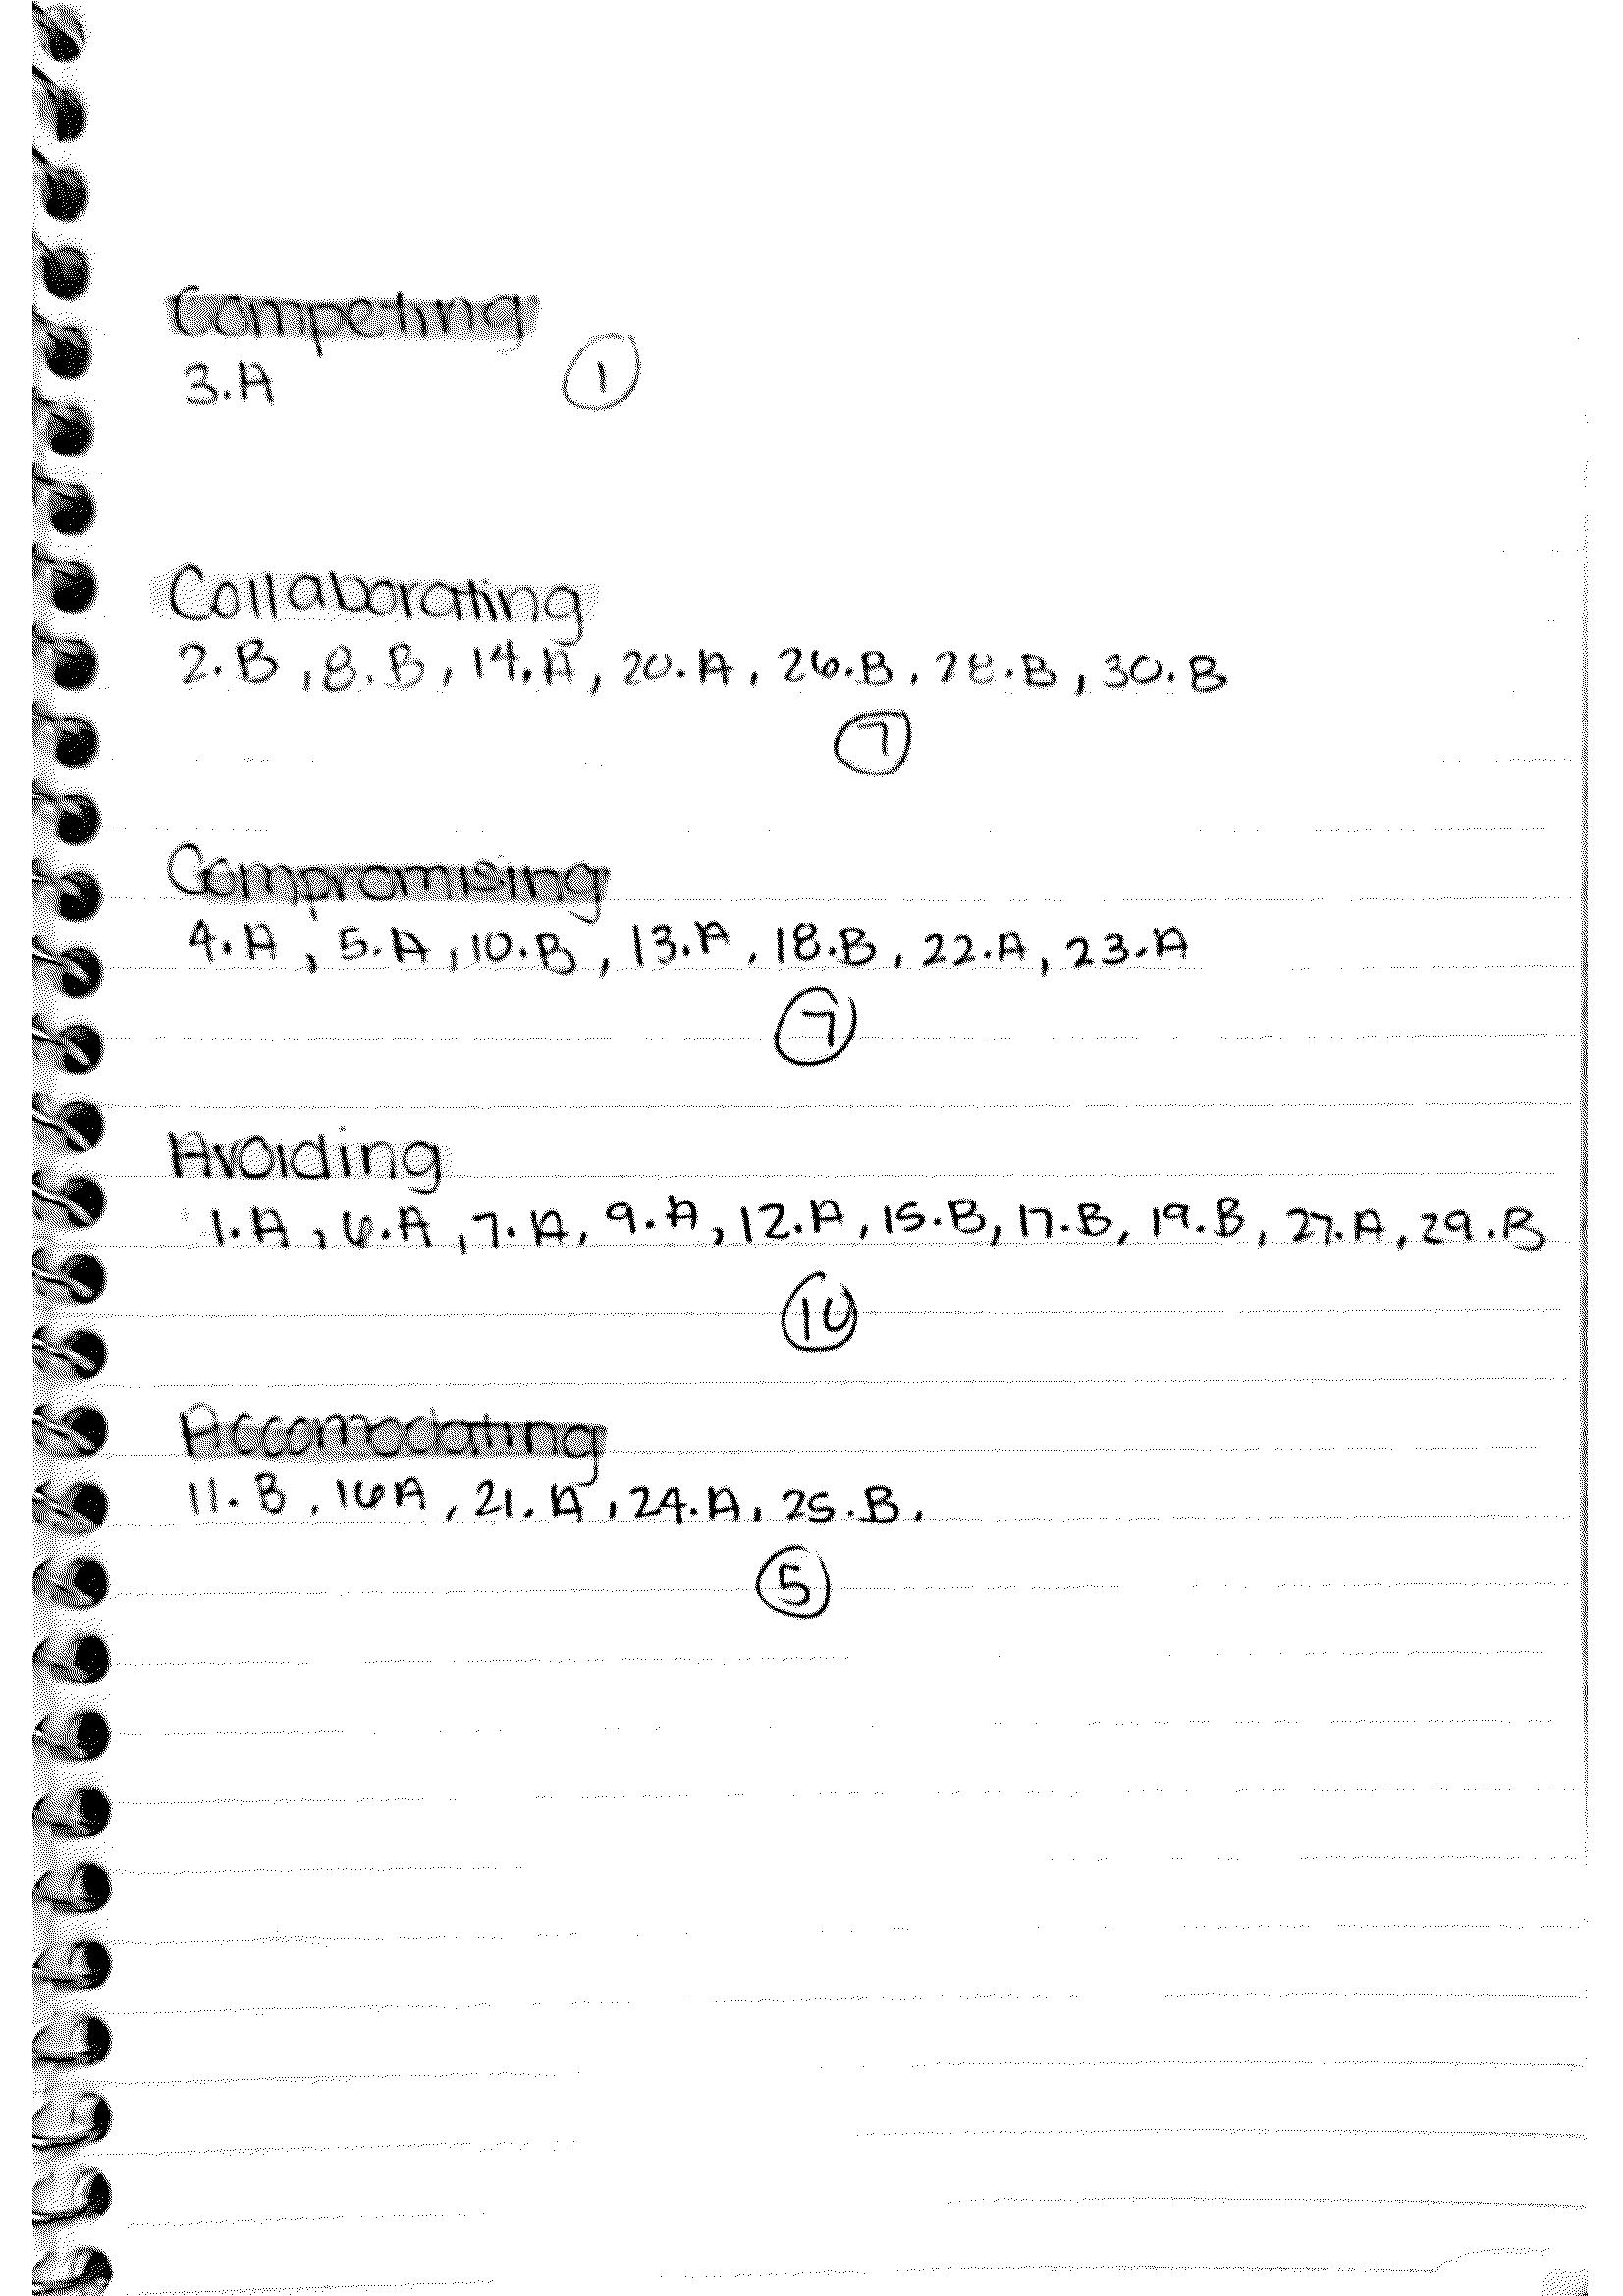 Competing
3.A 1
Collaborating
2.B , 8.B , 14.A , 20.A , 26.B , 28.B , 30.B
7
Compromising
4.A , 5.A , 10.B , 13.A , 18.B , 22.A , 23.A
7
Avoiding
1.A , 6.A , 7.A , 9.A , 12.A , 15.B , 17.B , 19.B , 27.A , 29.B
10
Accomodating
11.B , 16A , 21.A , 24.A , 25.B .
5